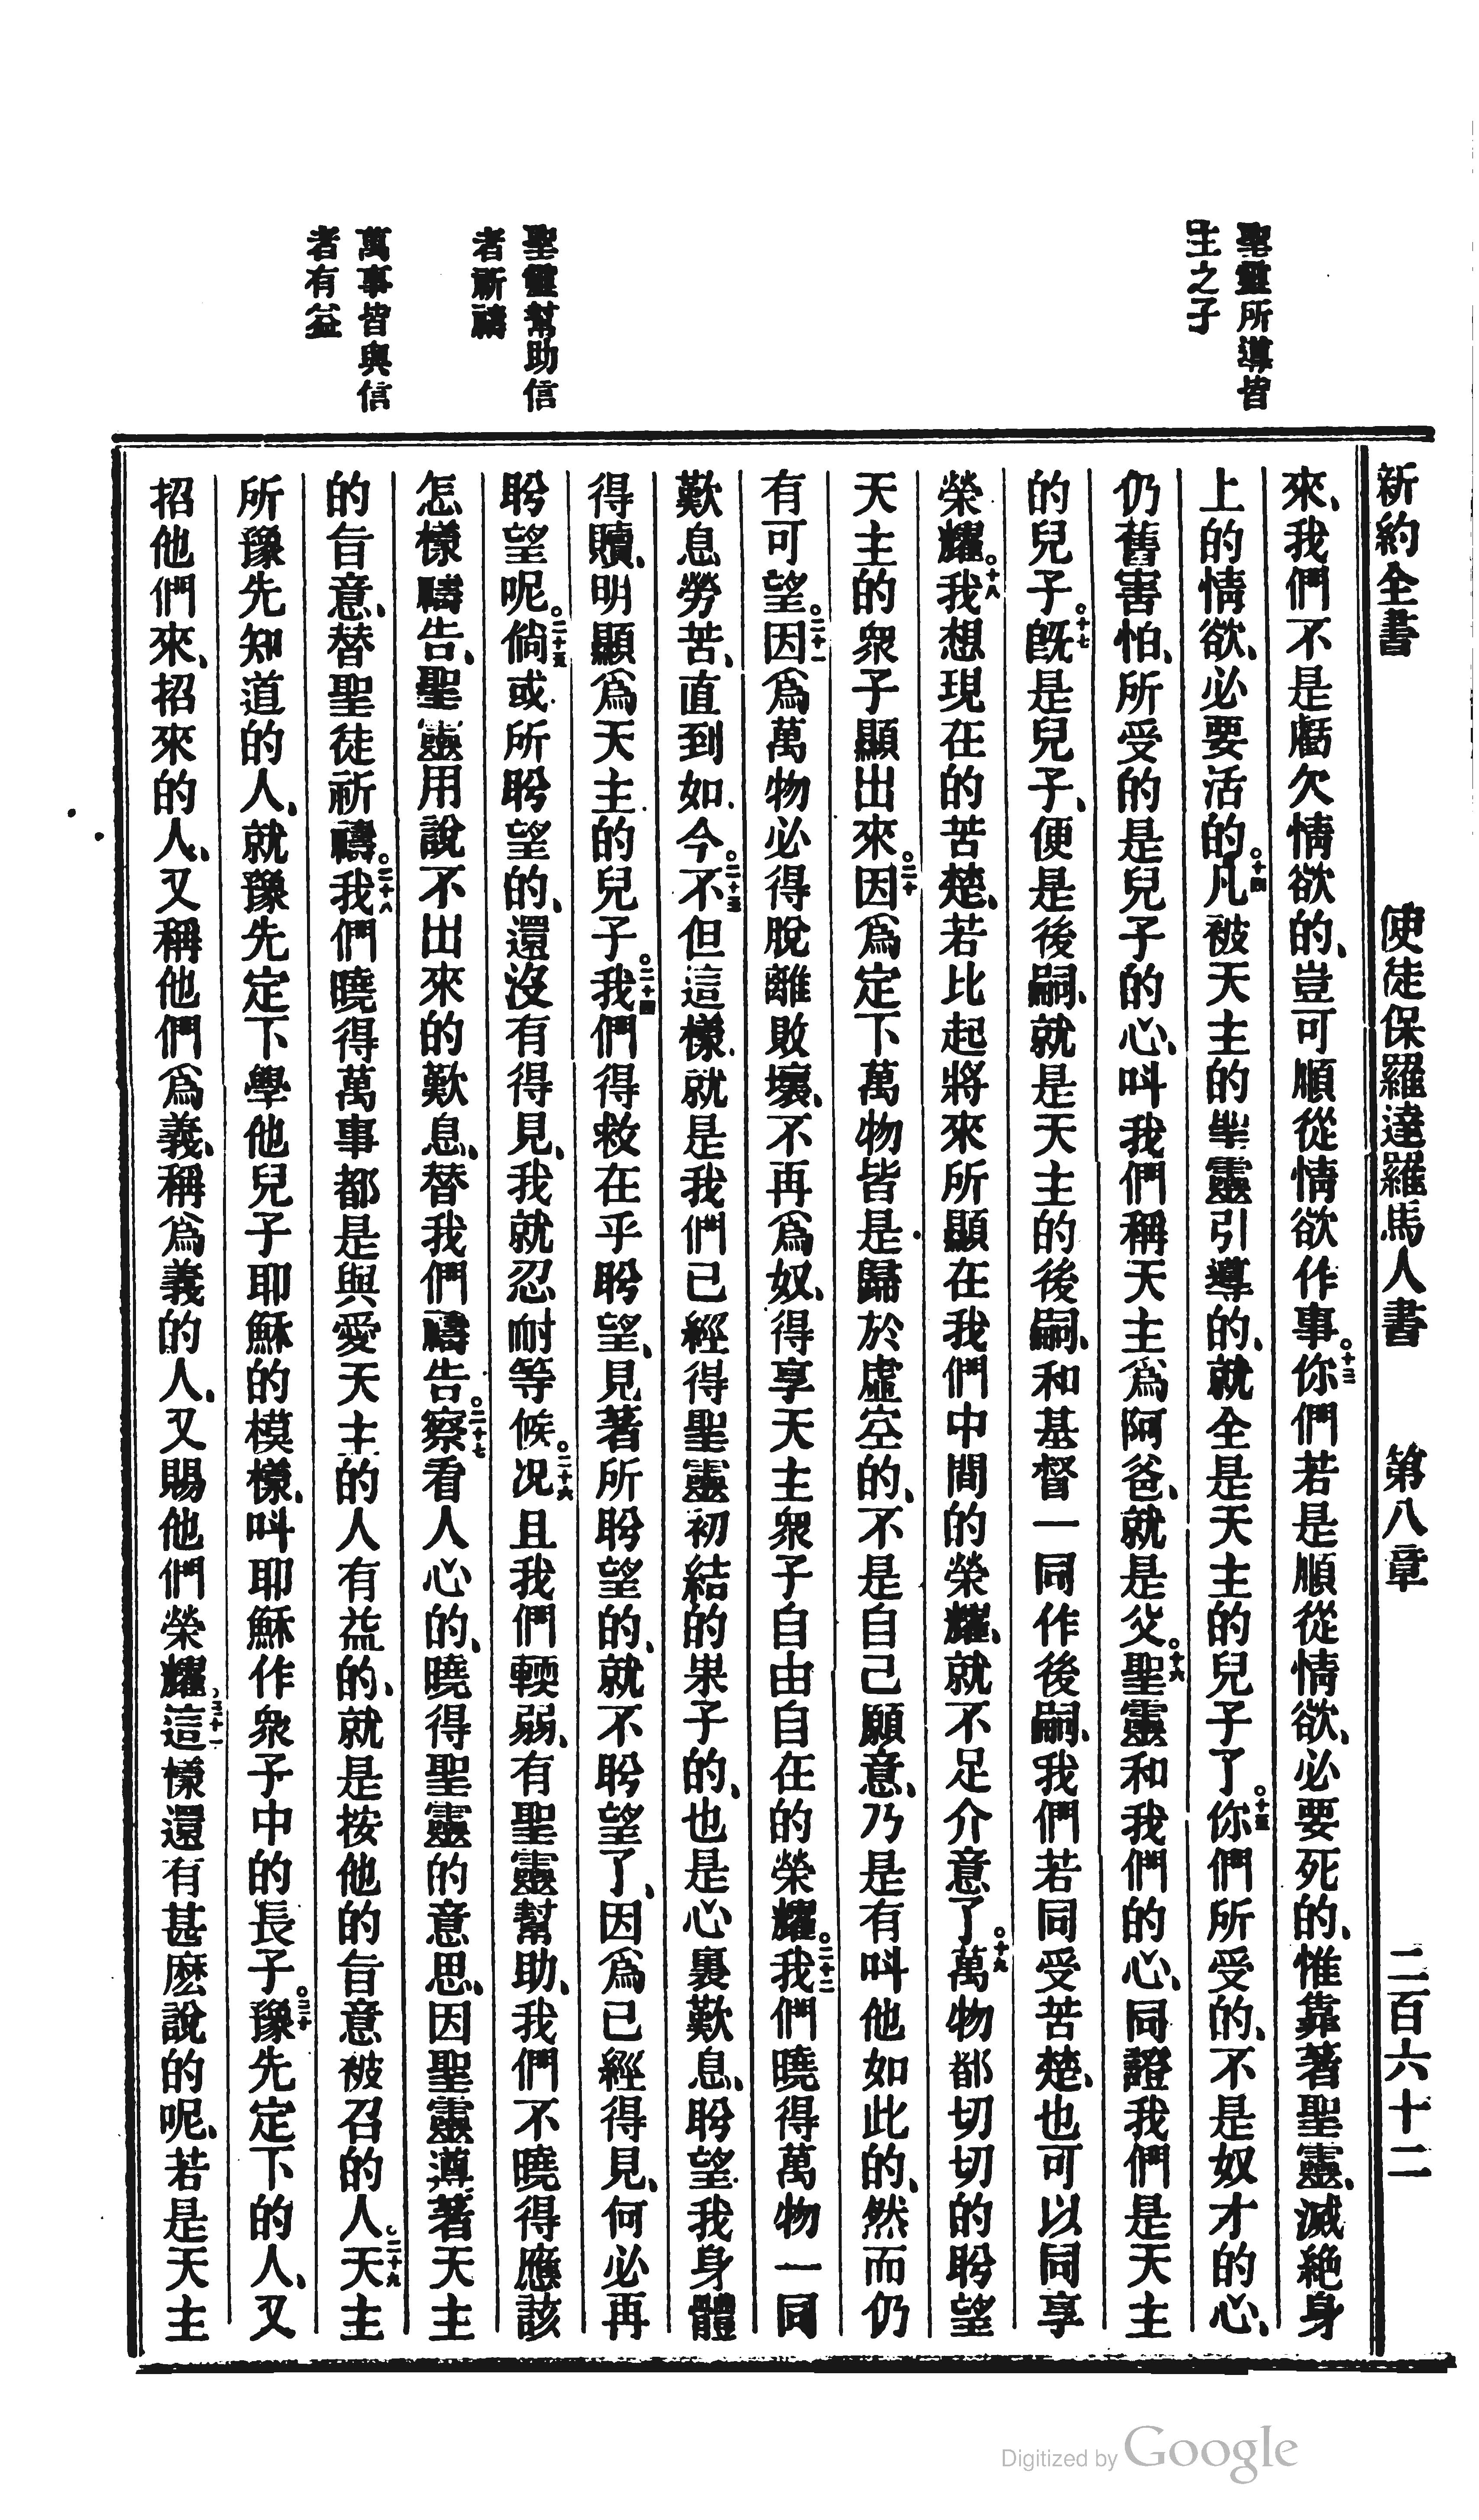 新約全書 使徒保羅達羅馬人書 第八章 二百六十二
聖靈所導皆
主之子
聖靈幫助信
者祈禱
萬事皆與信
者有益
來、我們不是虧欠情欲的、豈可順從情欲作事。十三你們若是順從情欲、必要死的、惟靠著聖靈、滅絕身
上的情欲、必要活的。十四凡被天主的聖靈引導的、就全是天主的兒子了。十五你們所受的、不是奴才的心、
仍舊害怕、所受的是兒子的心、叫我們稱天主爲阿爸、就是父。十六聖靈和我們的心、同證我們是天主
的兒子。十七旣是兒子、便是後嗣、就是天主的後嗣、和基督一同作後嗣、我們若同受苦楚、也可以同享
榮耀。十八我想現在的苦楚、若比起將來所顯在我們中間的榮耀、就不足介意了。十九萬物都切切的盼望
天主的衆子顯出來。二十因爲定下萬物皆是歸於虛空的、不是自己願意、乃是有叫他如此的、然而仍
有可望。二十一因爲萬物必得脫離敗壞、不再爲奴、得享天主衆子自由自在的榮耀。二十二我們曉得萬物一同
歎息勞苦、直到如今。二十三不但這樣、就是我們已經得聖靈初結的果子的、也是心裏歎息、盼望我身體
得贖、明顯爲天主的兒子。二十四我們得救在乎盼望、見著所盼望的、就不盼望了、因爲已經得見、何必再
盼望呢。二十五倘或所盼望的、還沒有得見、我就忍耐等候。二十六况且我們輭弱、有聖靈幫助、我們不曉得應該
怎樣禱告、聖靈用說不出來的歎息、替我們禱告。二十七察看人心的、曉得聖靈的意思、因聖靈遵著天主
的旨意、替聖徒祈禱。二十八我們曉得萬事都是與愛天主的人有益的、就是按他的旨意被召的人。二十九天主
所豫先知道的人、就豫先定下學他兒子耶穌的模樣、叫耶穌作衆子中的長子。三十豫先定下的人、又
招他們來、招來的人、又稱他們爲義、稱爲義的人、又賜他們榮耀。三十一這樣還有甚麽說的呢、若是天主
Digitized by Google